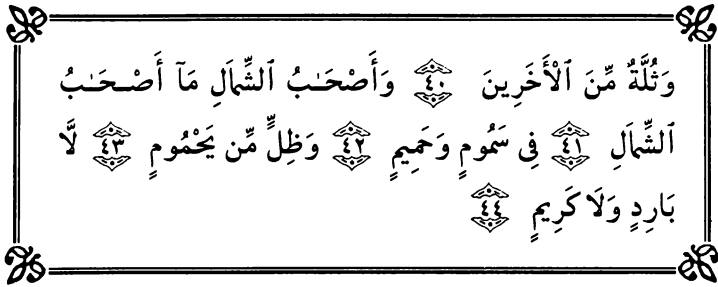 وَثُلَّةٌ مِّنَ ٱلْأَخَرِينَ ٤٠ وَأَصْحَـٰبُ ٱلشِّمَالِ مَآ أَصْحَـٰبُ
ٱلشِّمَالِ ٤١ فِى سَمُومٍ وَحَمِيمٍ ٤٢ وَظِلٍّ مِّن يَحْمُومٍ ٤٣ لَّا
بَارِدٍ وَلَا كَرِيمٍ ٤٤